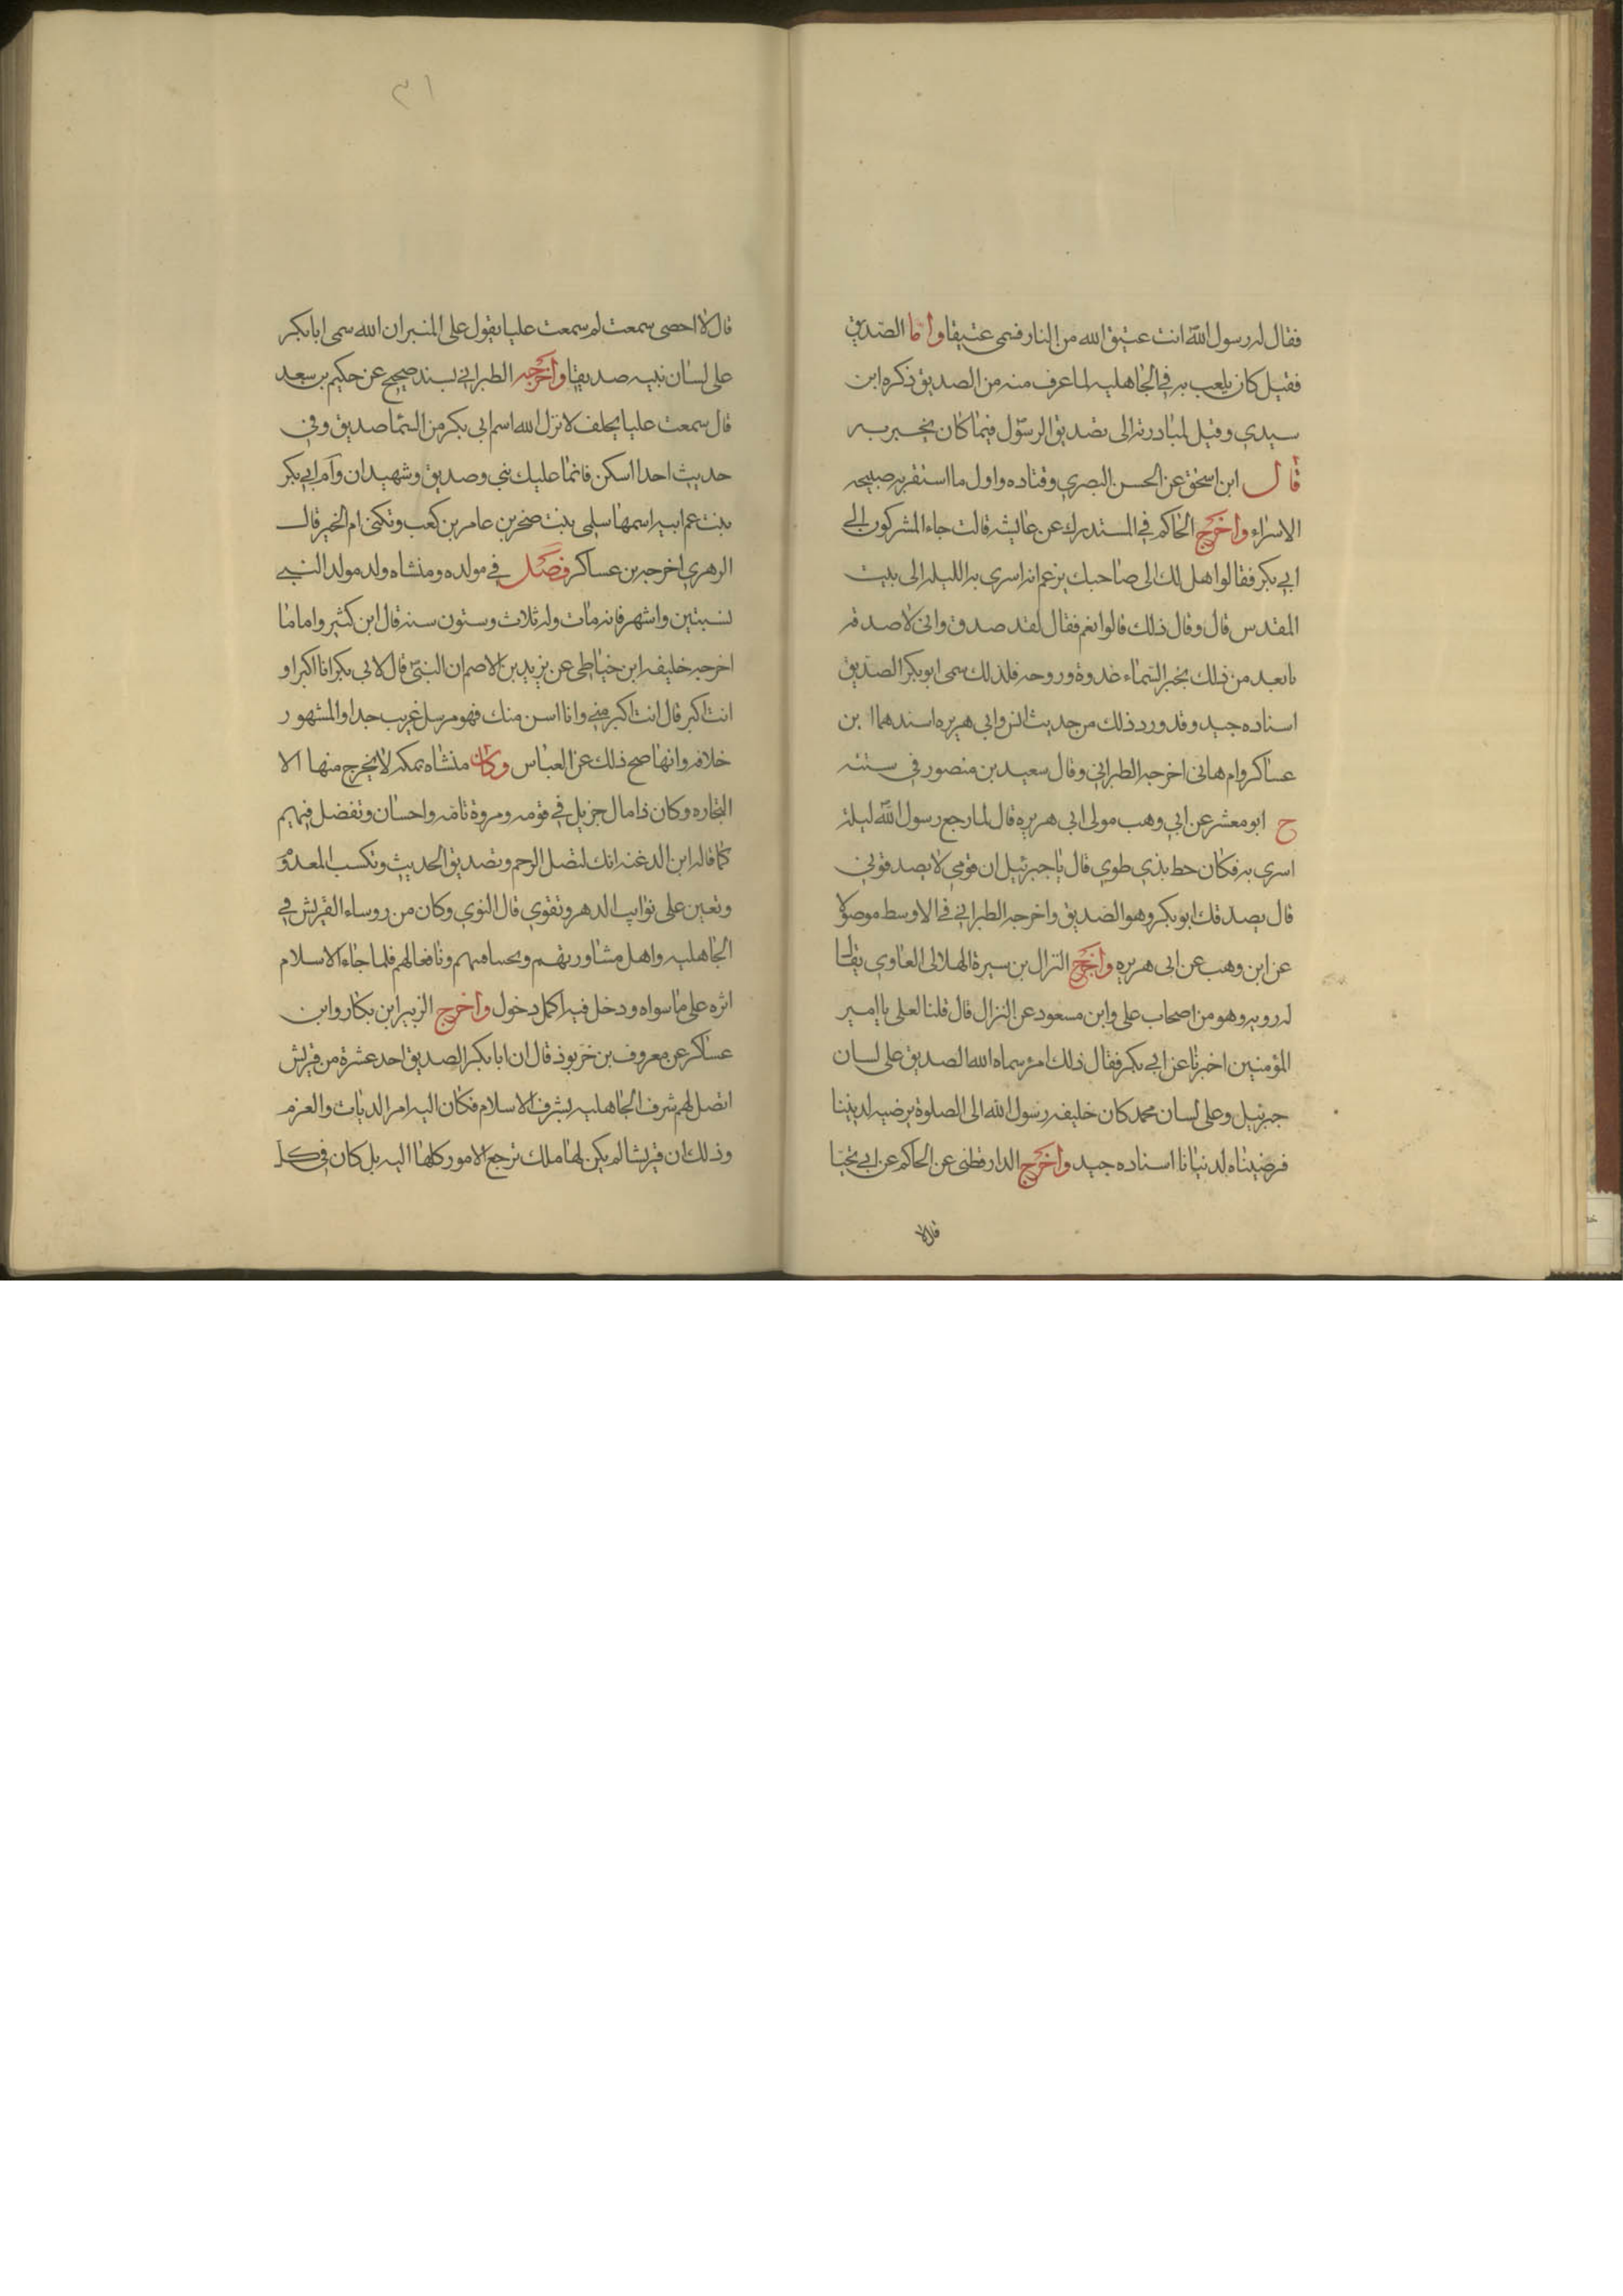 فقال له رسول الله انت عتيق الله من النار فسمى عتيقا واما الصديق
فقيل كان يلعب به في الجاهليه لما عرف منه من الصديق ذكره ابن
سيدي وقيل لمبادرته الى تصديق الرسول فيما كان يخبر به
قال ابن اسحق عن الحسن البصري وقتاده واول ما استقر به صبيحه
الاسراء واخرج الحاكم في المستدرك عن عايشه قالت جاء المشركون الى
ابي بكر فقالوا هل لك الى صاحبك يزعم انه اسرى به الليله الى بيت
المقدس قال وقال ذلك قالوا نعم فقال لقد صدق وانى لاصدقه
بابعد من ذلك بخبر السماء غدوة وروحه فلذلك سمى ابو بكر الصديق
اسناده جيد وقد ورد ذلك من حديث انس وابى هريره اسندهما ابن
عساكر وام هانى اخرجه الطبراني وقال سعيد بن منصور في سننه
ح ابو معشر عن ابي وهب مولى ابى هريره قال لما رجع رسول الله ليلة
اسرى به فكان حط بذي طوي قال يا جبرئيل ان قومي لا يصدقوني
قال يصدقك ابو بكر وهو الصديق واخرجه الطبراني في الاوسط موصولا
عن ابن وهب عن ابى هريره واخرج النزال بن سبرة الهلالى العاوي يقال
له رويه وهو من اصحاب على وابن مسعود عن النزال قال قلنا لعلى يا امير
المؤمنين اخبرنا عن ابي بكر فقال ذلك امرؤ سماه الله الصديق على لسان
جبرئيل وعلى لسان محمد كان خليفه رسول الله الى الصلوة يرضيه لديننا
فرضيناه لدنيانا اسناده جيد واخرج الدارقطنى عن الحاكم عن ابي يحيا
قال لا
٣١
قال لا احصى سمعت لم سمعت عليا يقول على المنبر ان الله سمى ابا بكر
على لسان نبيه صديقا واخرجه الطبرانى بسند صحيح عن حكيم بن سعد
قال سمعت عليا يحلف لانزل الله اسم ابى بكر من السما صديق وفي
حديث احد اسكن فانما عليك نبي وصديق وشهيدان وام ابي بكر
بنت عم ابيه اسمها سلمى بنت صخر بن عامر بن كعب وتكنى ام الخير قال
الزهري اخرجه بن عساكر فصل في مولده ومنشاه ولد مولد النبي
بسنتين واشهر فانه مات وله ثلاث وستون سنه قال ابن كثير واما ما
اخرجه خليفه ابن خياطى عن يزيد بن الاصم ان النبي قال لابي بكر انا اكبر او
انت اكبر قال انت اكبر مني وانا اسن منك فهو مرسل غريب جدا والمشهور
خلافه وانها صح ذلك عن العباس وكان منشاه بمكه لا يخرج منها الا
التجاره وكان ذا مال جزيل في قومه ومروة تامه واحسان وتفضل فيهم
كما قاله ابن الدغنه انك لتصل الرحم وتصديق الحديث وتكسب المعدوم
وتعين على نوايب الدهر وتقوي قال النوي وكان من روساء القريش في
الجاهليه واهل مشاورتهم ونافعا لهم فلما جاء الاسلام
اثره على ما سواه ودخل فيه اكمل دخول واخرج الزبير ابن بكار وابن
عساكر عن معروف بن خربوذ قال ان ابا بكر الصديق احد عشرة من قريش
اتصل لهم شرف الجاهليه بشرف الاسلام فكان اليه امر الديات والغرم
وذلك ان قريشا لم يكن لها ملك ترجع الامور كلها اليه بل كان في كل